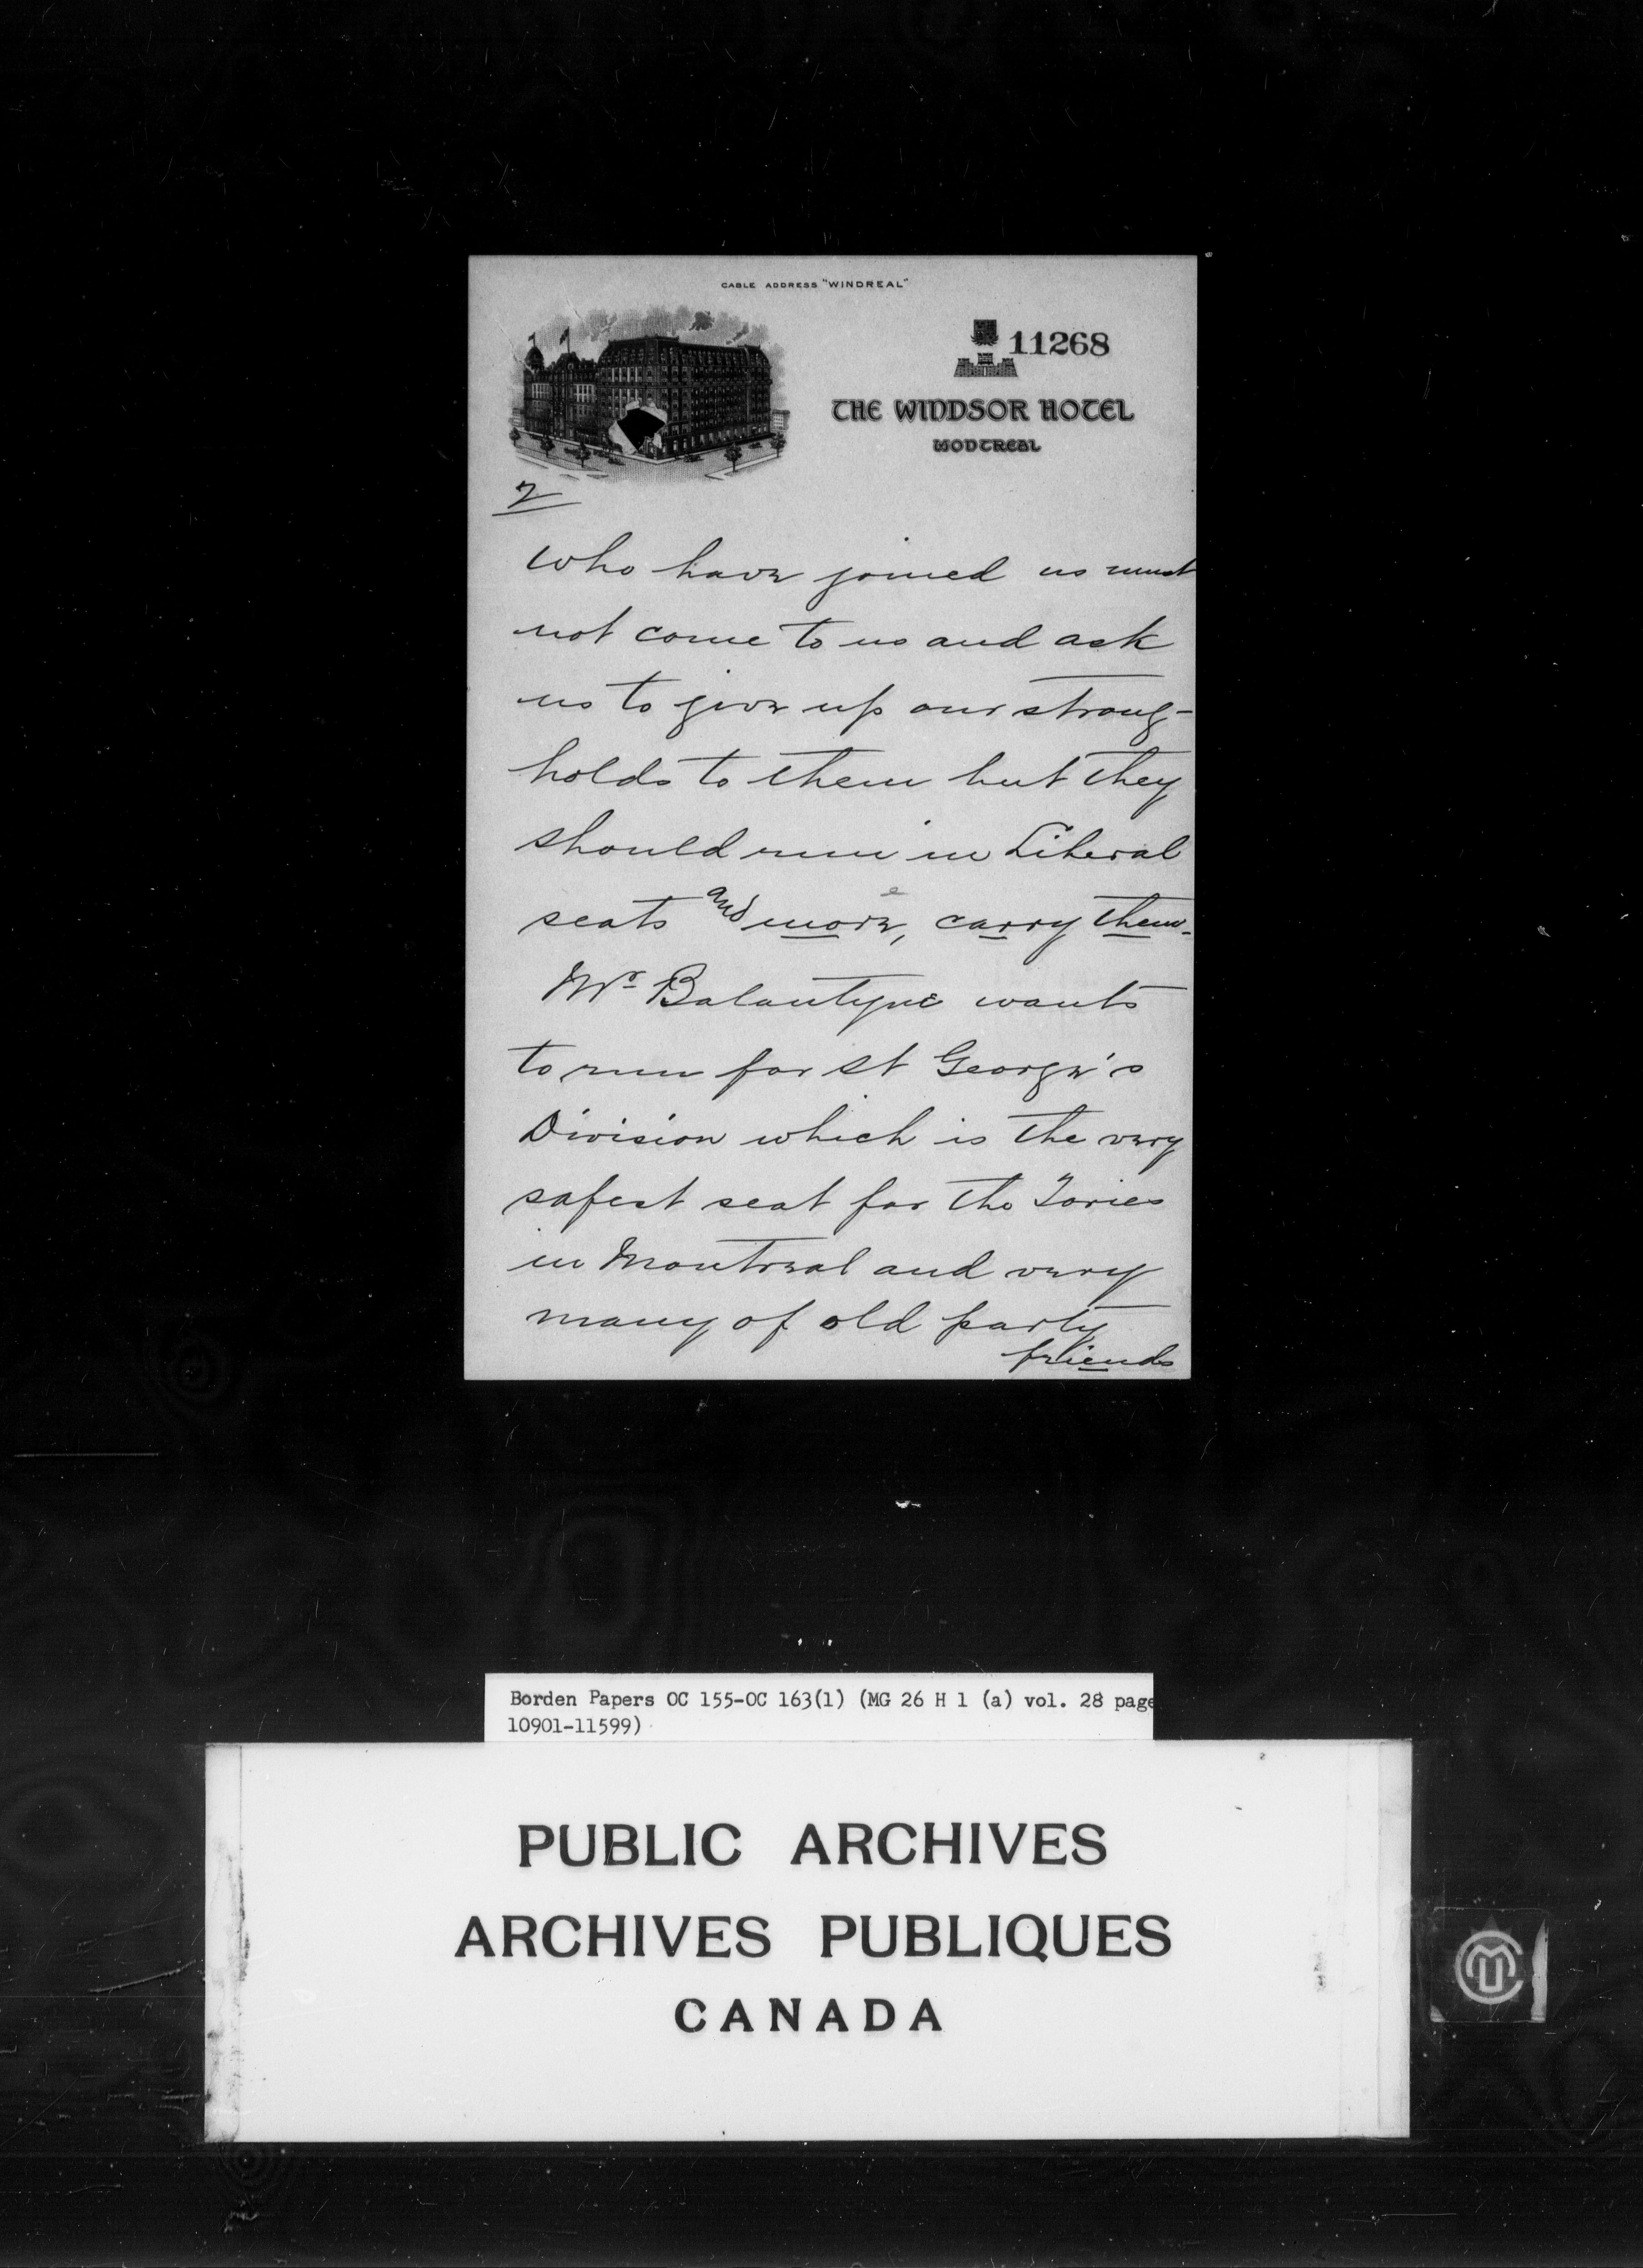 CABLE ADDRESS "WINDREAL"
11268
THE WINDSOR HOTEL
MONTREAL
2
who have joined us must
not come to us and ask
us to give up our strong-
holds to them but they
should run in Liberal
seats and more, carry them.
Mr Balantyne wants
to run for St George's
Division which is the very
safest seat for the Tories
in Montreal and very
many of old party
friends
Borden Papers OC 155-OC 163(1) (MG 26 H 1 (a) vol. 28 page
10901-11599)
PUBLIC ARCHIVES
ARCHIVES PUBLIQUES
CANADA